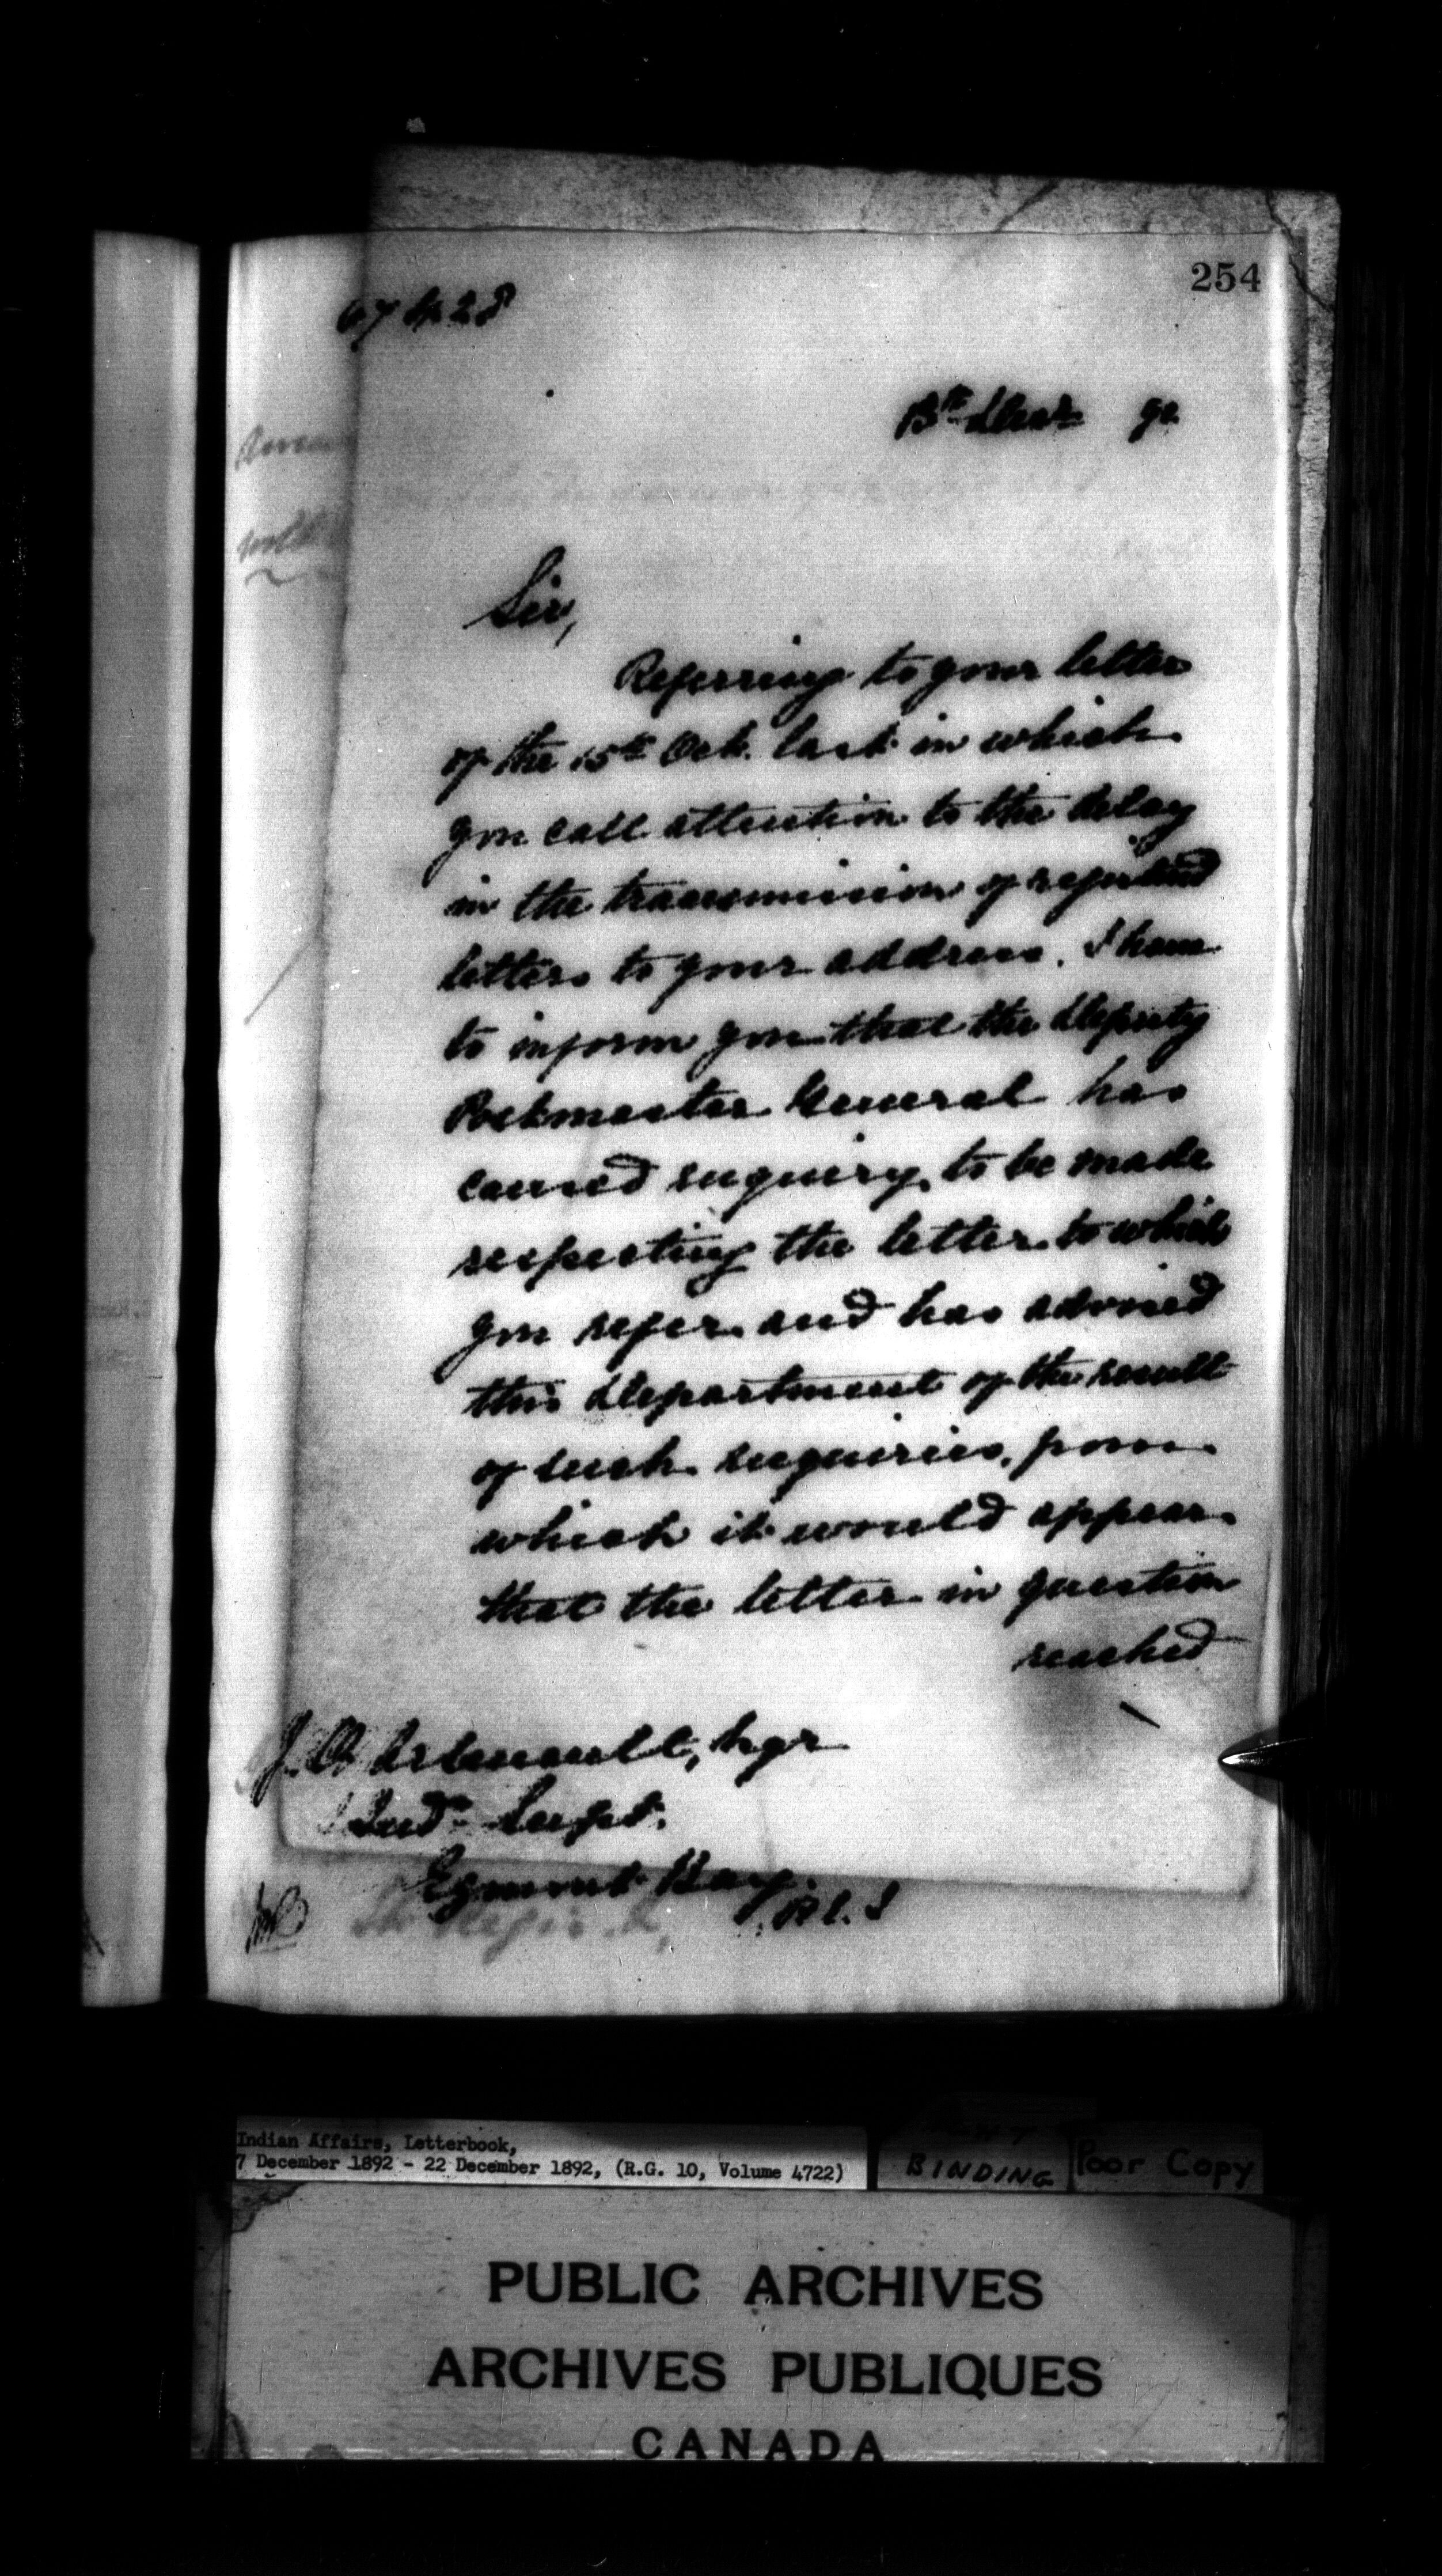 254
13th Decr 92
Sir,
Referring to your letter
of the 15th Oct. last in which
you call attention to the delay
in the transmission of registered
letters to your address. I have
to inform you that the Deputy
Postmaster General has
caused enquiry to be made
respecting the letter to which
you refer and has advised
this Department of the result
of such enquiries, from
which it would appear
that the letter in question
reached
J. O. Arsenault, Esqr
Indn Supt.
Egmont Bay,
P.E.I
Indian Affairs, Letterbook,
7 December 1892 - 22 December 1892, (R.G. 10, Volume 4722)
BINDING
Poor Copy
PUBLIC ARCHIVES
ARCHIVES PUBLIQUES
CANADA